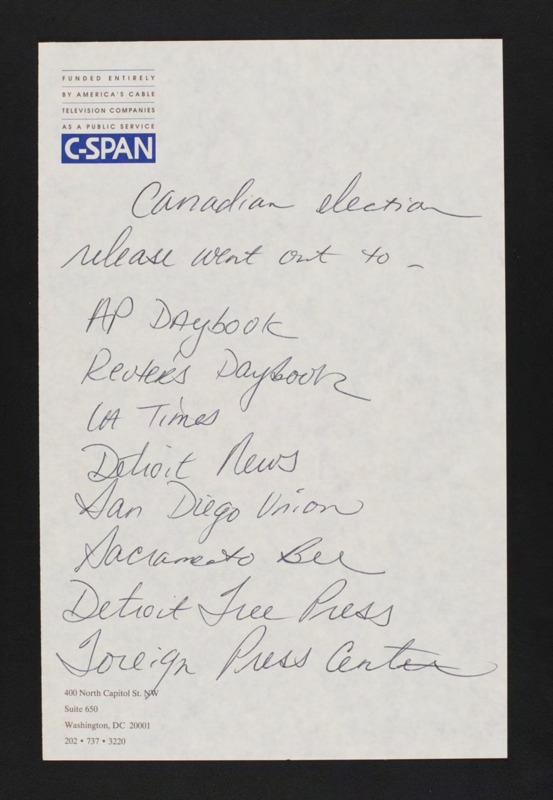 FUNDED ENTIRELY
BY AMERICA'S CABLE
TELEVISION COMPANIES
AS A PUBLIC SERVICE
C-SPAN
Canadian election
release went out to -
AP Daybook
Reuters Daybook
LA Times
Detroit News
San Diego Union
Sacramento Bee
Detroit Free Press
Foreign Press Center
400 North Capitol St. NW
Suite 650
Washington, DC 20001
202 • 737 • 3220